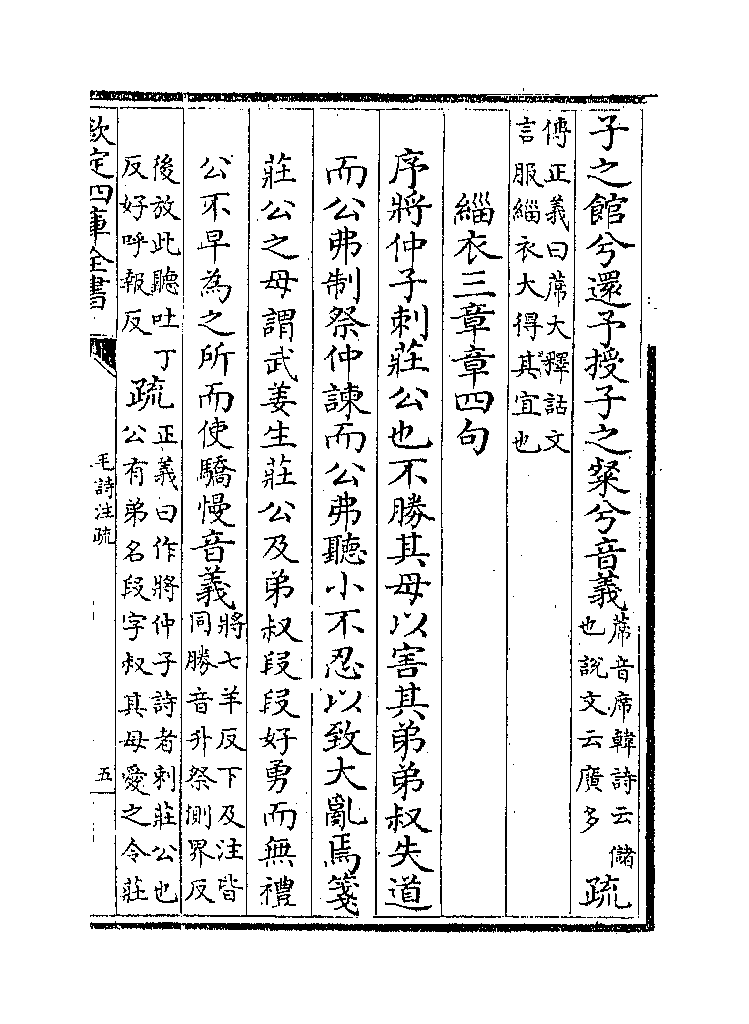 子之館兮還予授子之粲兮音義蓆音席韓詩云儲
也説文云廣多疏
傳正義曰蓆大釋詁文
言服緇衣大得其宜也
緇衣三章章四句
序將仲子刺莊公也不勝其母以害其弟弟叔失道
而公弗制祭仲諫而公弗聽小不忍以致大亂焉箋
莊公之母謂武姜生莊公及弟叔段段好勇而無禮
公不早為之所而使驕慢音義將七羊反下及注皆
同勝音升祭側界反
後放此聽吐丁
反好呼報反疏正義曰作將仲子詩者刺莊公也
公有弟名段字叔其母愛之令莊
欽定四庫全書
毛詩注疏
五